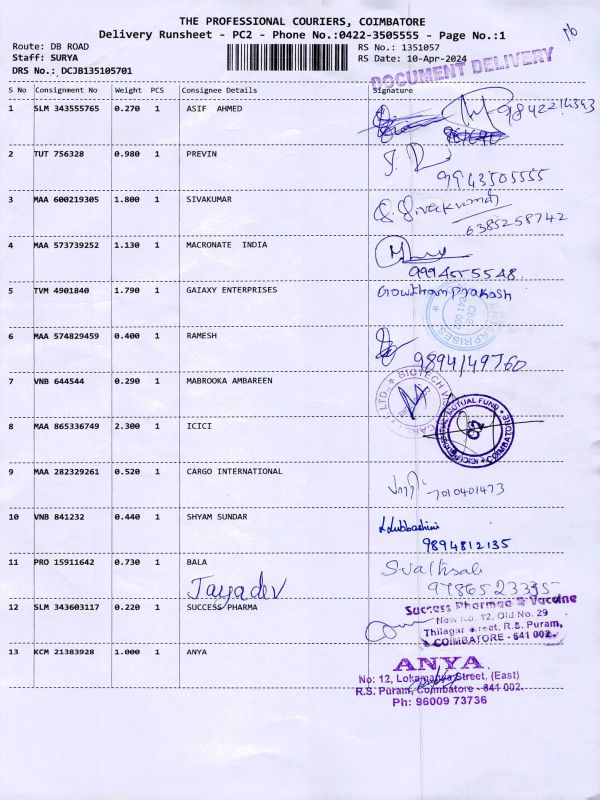 THE PROFESSIONAL COURIERS, COIMBATORE
Delivery Runsheet - PC2 - Phone No.:0422-3505555 - Page No.:1
Route: DB ROAD
Staff: SURYA
DRS No.: DCJB135105701
RS No.: 1351057
RS Date: 10-Apr-2024
DOCUMENT DELIVERY
S No Consignment No Weight PCS Consignee Details Signature
1 SLM 343555765 0.270 1 ASIF AHMED
2 TUT 756328 0.980 1 PREVIN 9943505555
3 MAA 600219305 1.800 1 SIVAKUMAR S. Sivakumar
6385258742
4 MAA 573739252 1.130 1 MACRONATE INDIA
9994555548
5 TVM 4901840 1.790 1 GAIAXY ENTERPRISES Gowtham prakash
ENTERPRISES
6 MAA 574829459 0.400 1 RAMESH 9894149760
7 VNB 644544 0.290 1 MABROOKA AMBAREEN
BIOTECH
LTD.
8 MAA 865336749 2.300 1 ICICI
MUTUAL FUND
COIMBATORE
9 MAA 282329261 0.520 1 CARGO INTERNATIONAL 7010401473
10 VNB 841232 0.440 1 SHYAM SUNDAR
9894812135
11 PRO 15911642 0.730 1 BALA
Jayadev
12 SLM 343603117 0.220 1 SUCCESS PHARMA
Success Pharmaa & Vaccine
New No. 12, Old No. 29
Thilagar Street, R.S. Puram,
COIMBATORE - 641 002.
13 KCM 21383928 1.000 1 ANYA
ANYA
No: 12, Lokamanya Street, (East)
R.S. Puram, Coimbatore - 641 002.
Ph: 96009 73736